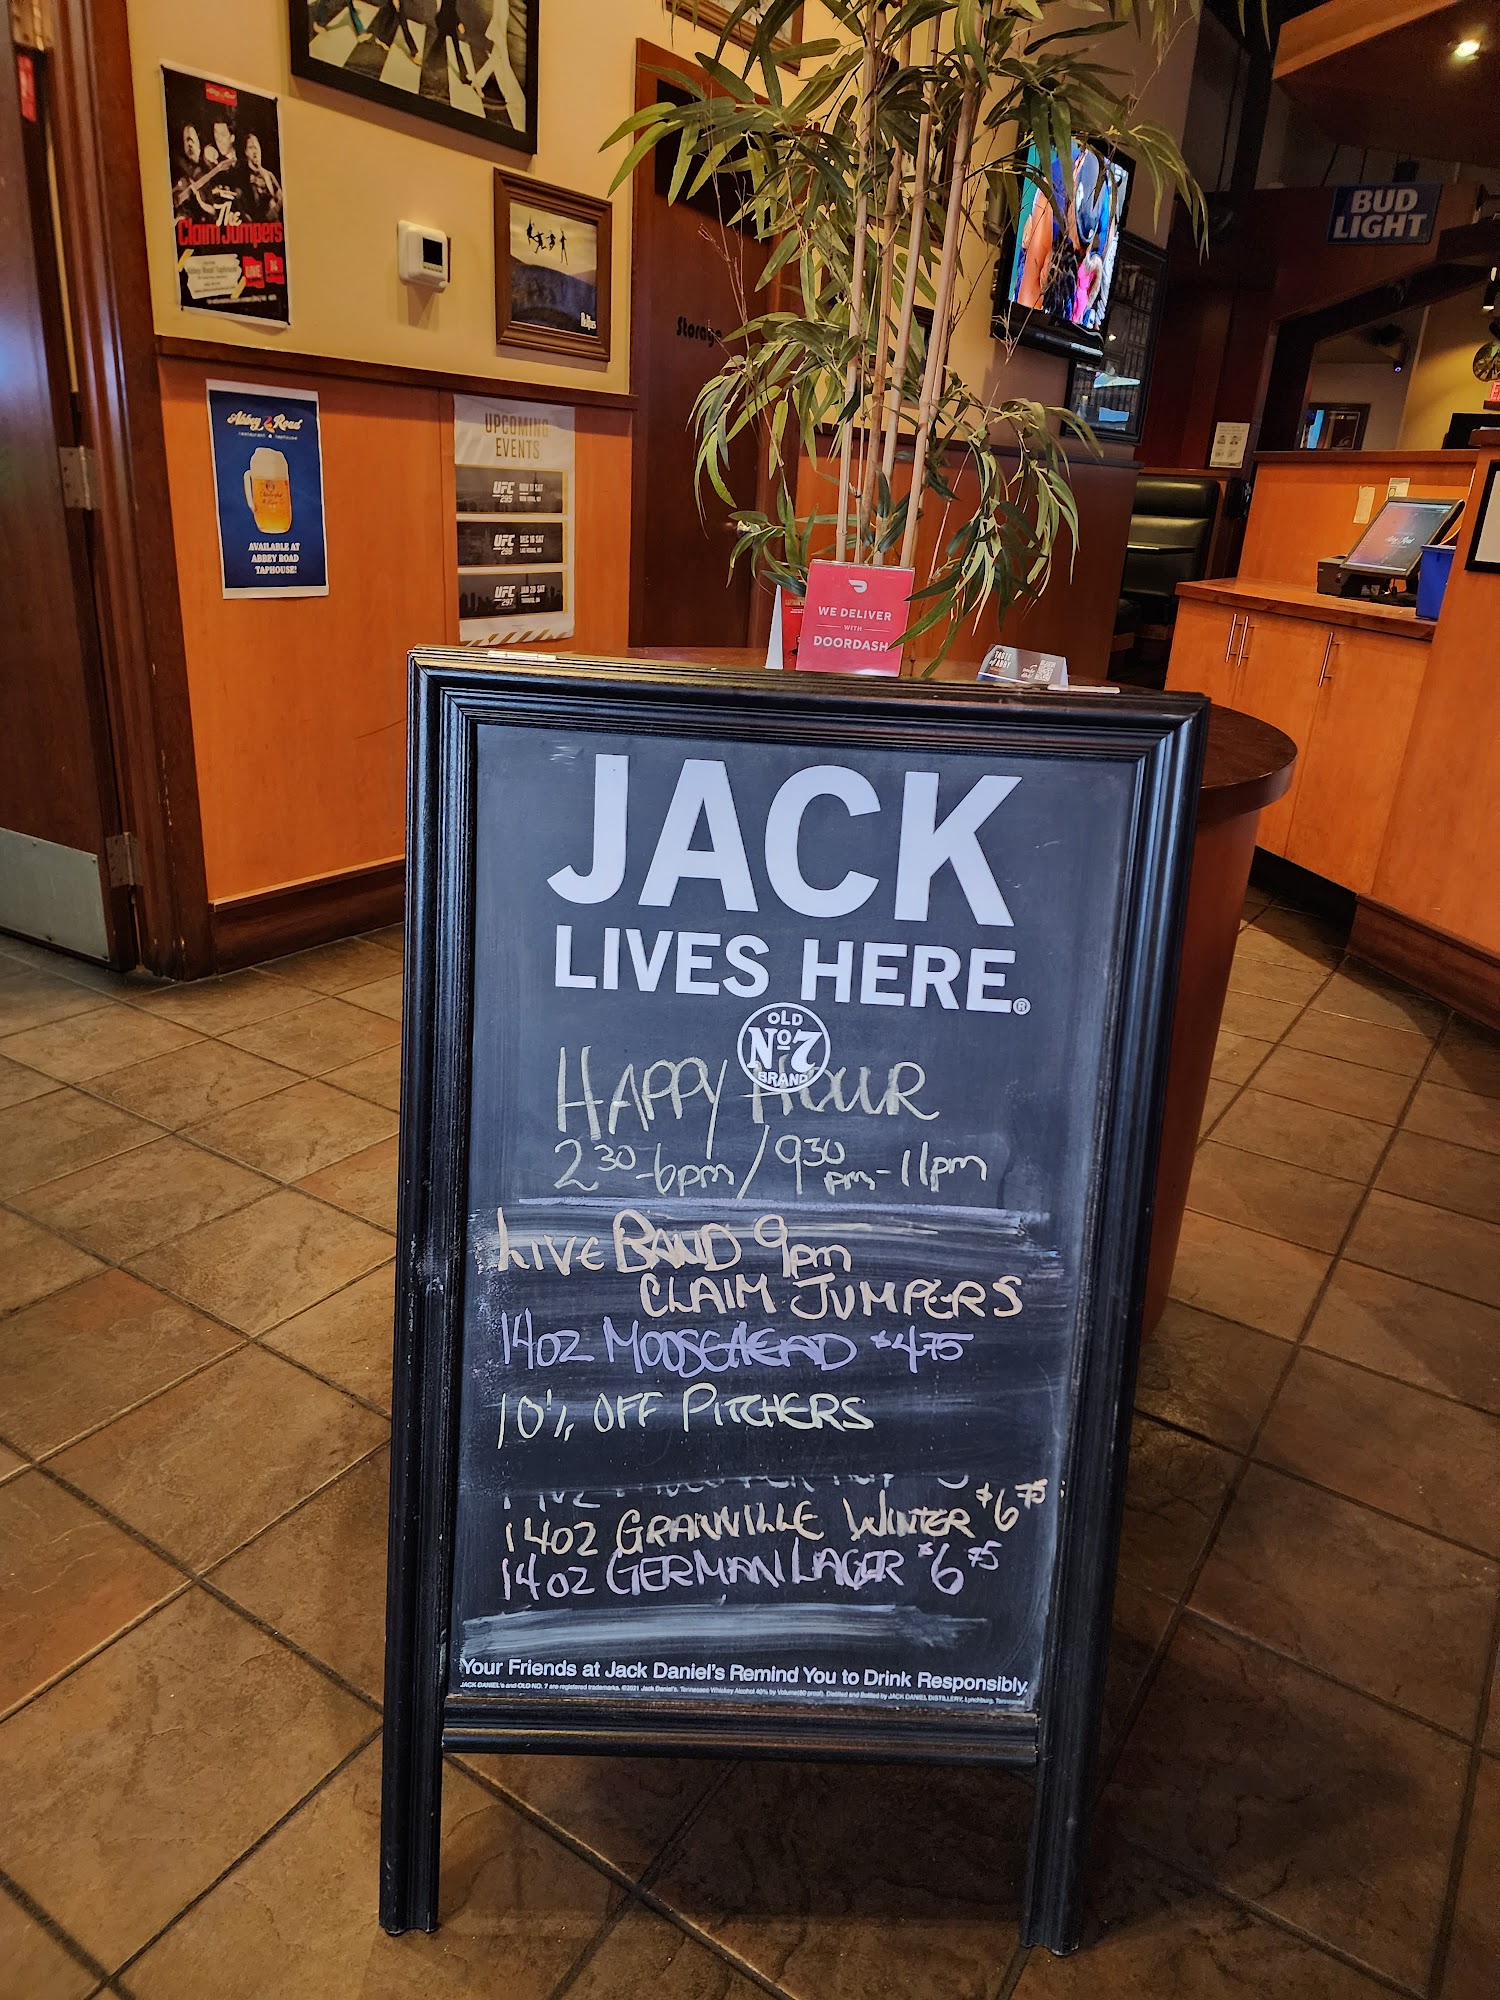 The
Claim Jumpers
LIVE
Beatles
Storage
BUD
LIGHT
Abbey Road
restaurant & taphouse
AVAILABLE AT
ABBEY ROAD
TAPHOUSE!
UPCOMING
EVENTS
UFC NOV 11 SAT
295
UFC DEC 16 SAT
296
UFC JAN 20 SAT
297
WE DELIVER
WITH
DOORDASH
TASTE
of ABBY
JACK
LIVES HERE®
OLD
Nº7
BRAND
HAPPY HOUR
2 30 -6pm / 9 30 pm - 11pm
LIVE BAND 9pm
CLAIM JUMPERS
14OZ MOOSEHEAD $4.75
10% OFF PITCHERS
14OZ GRANVILLE WINTER $6 75
14OZ GERMAN LAGER $6 75
Your Friends at Jack Daniel's Remind You to Drink Responsibly.
JACK DANIEL'S and OLD NO. 7 are registered trademarks. ©2021 Jack Daniel's. Tennessee Whiskey Alcohol 40% by Volume (80 proof). Distilled and Bottled by JACK DANIEL DISTILLERY, Lynchburg, Tennessee